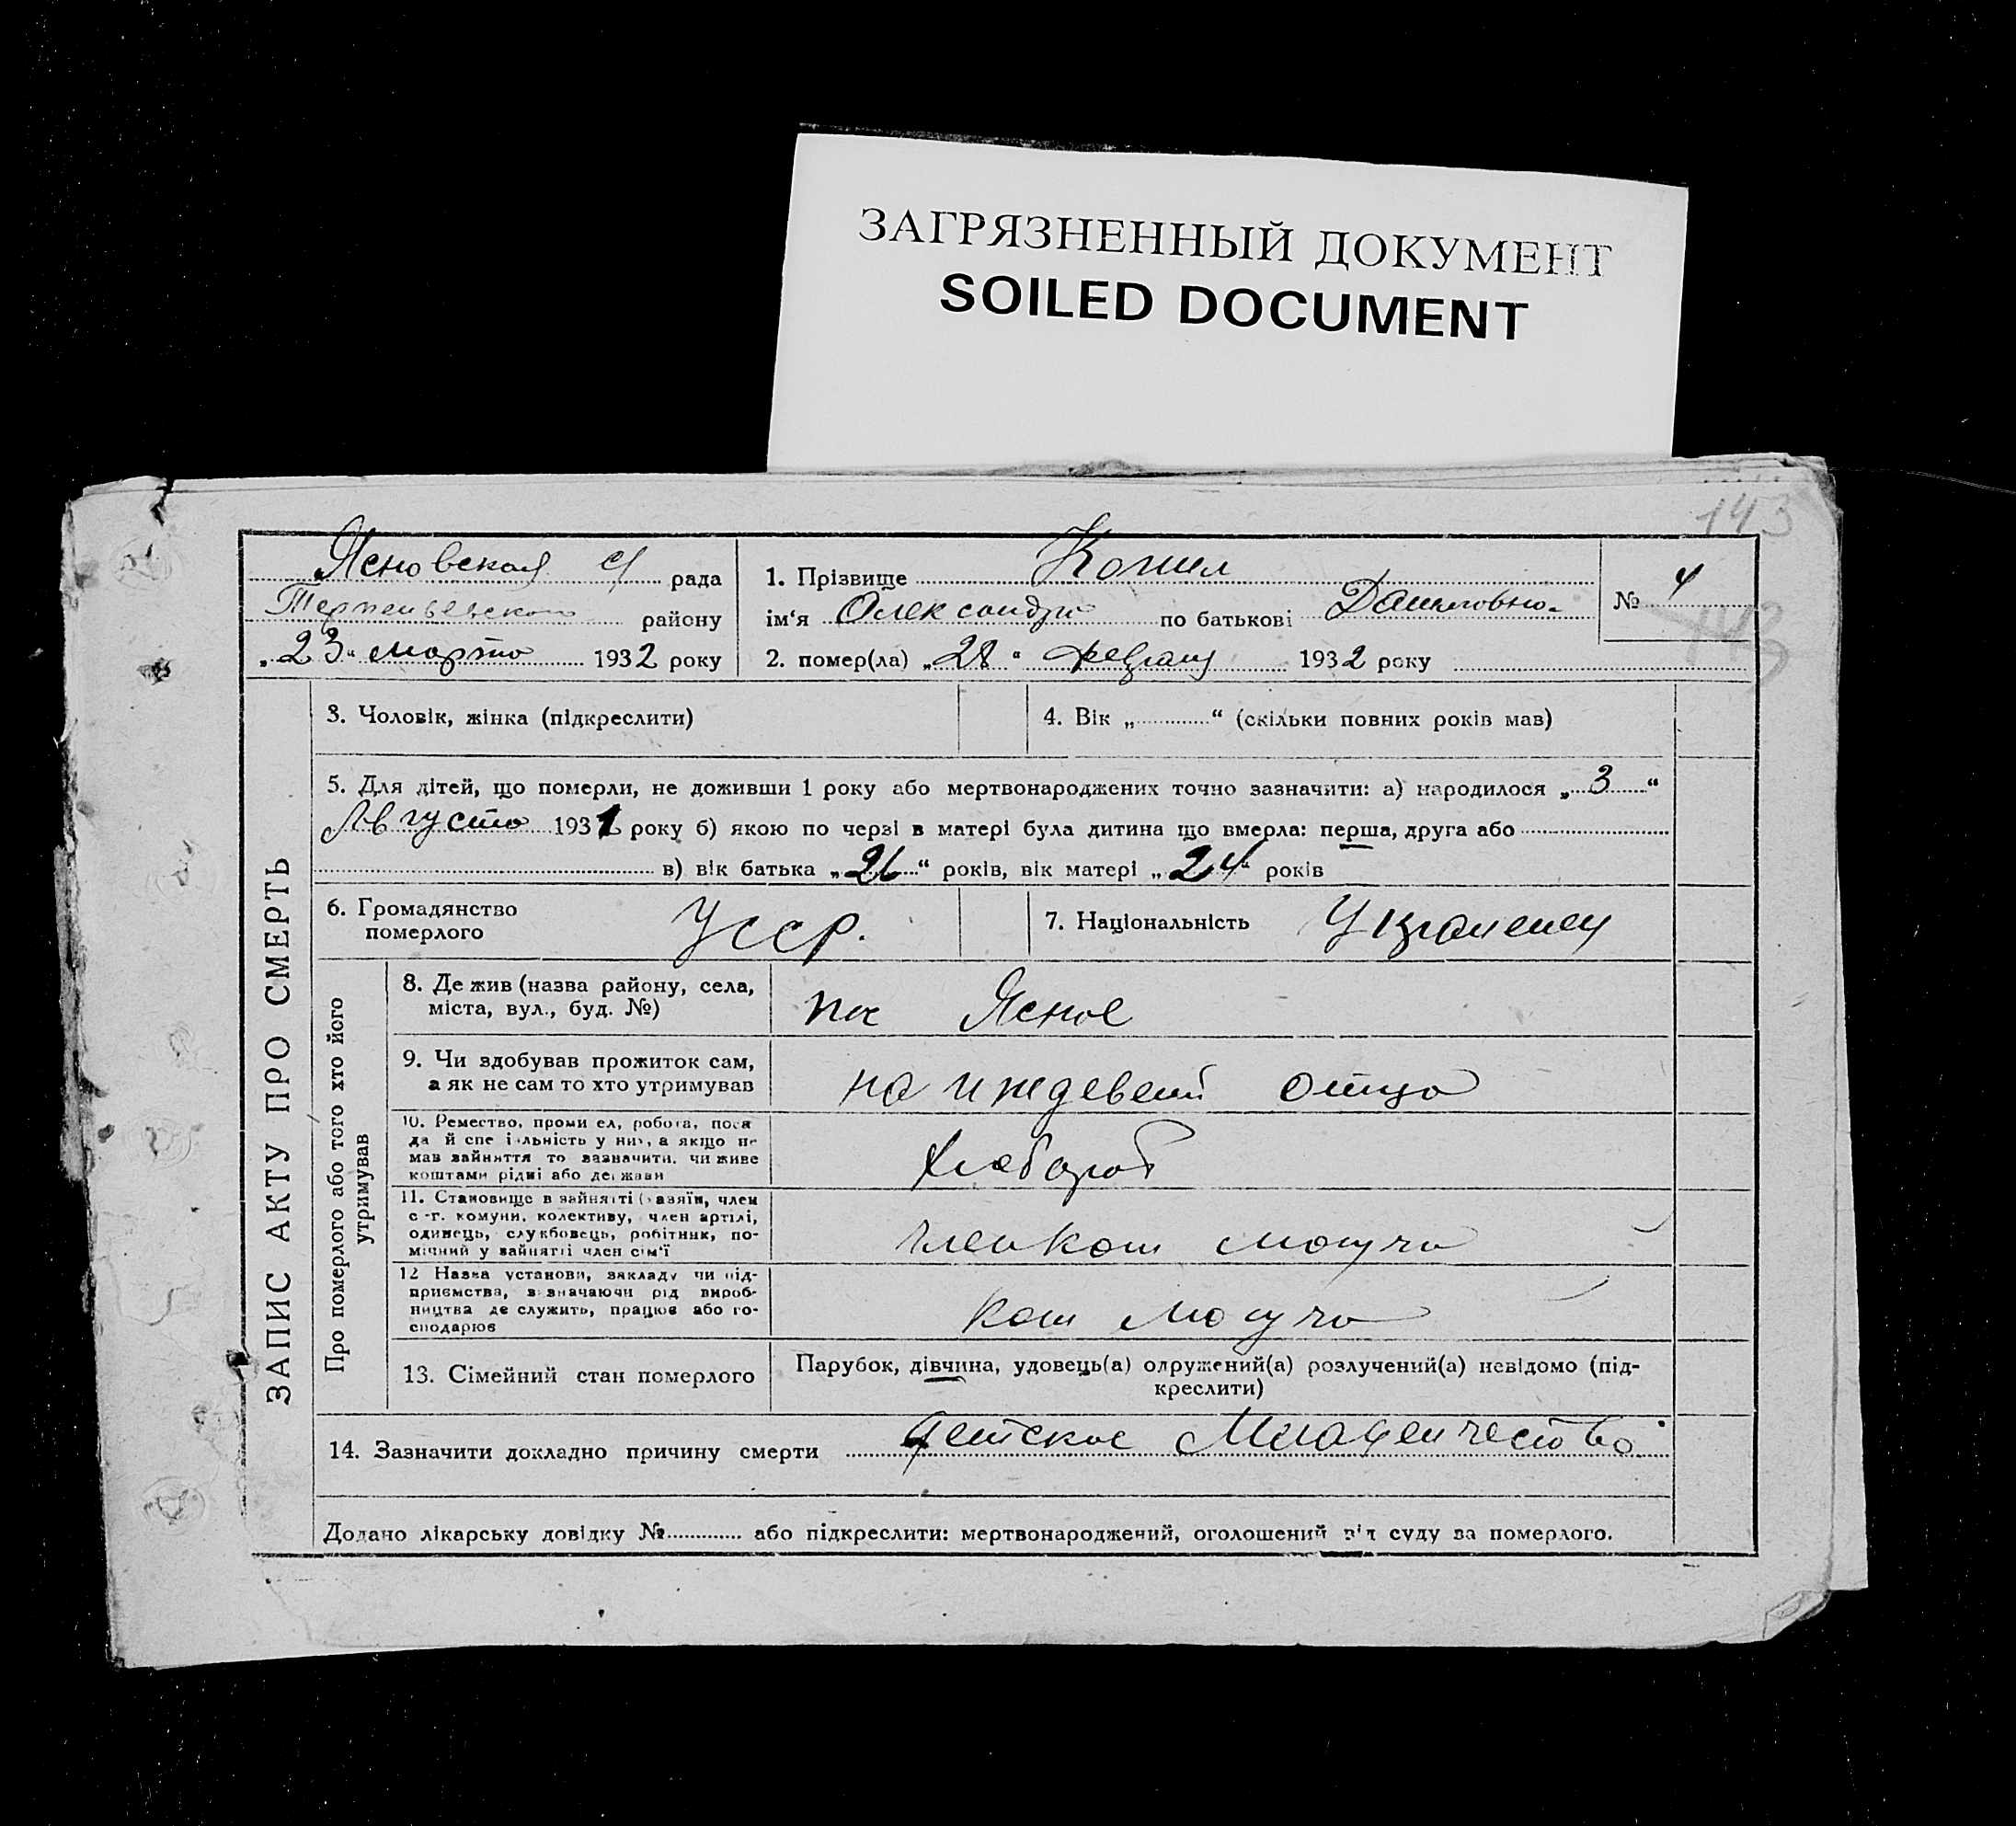 ЗАГРЯЗНЕННЫЙ ДОКУМЕНТ
SOILED DOCUMENT
143
ЗАПИС АКТУ ПРО СМЕРТЬ
Ясновская с/ рада
району
„23“ марта 1932 року
1. Прізвище
ім‘я Олександра по батькові
№ 4
143
2. помер(ла) „28“ 1932 року
3. Чоловік, жінка (підкреслити)
4. Вік „ “ (скільки повних років мав)
5. Для дітей, що померли, не доживши 1 року або мертвонароджених точно зазначити: а) народилося „3“
Августа 1931 року б) якою по черзі в матері була дитина що вмерла: перша, друга або
в) вік батька „26“ років, вік матері „24“ років
6. Громадянство
померлого
УССР.
7. Національність Украенец
Про померлого або того хто його
утримував
8. Де жив (назва району, села,
міста, вул., буд. №)
пос Ясное
9. Чи здобував прожиток сам,
а як не сам то хто утримував
на иждевении отца
10. Ремество, промисел, робота, поса
да й спеціяльність у них, а якщо не
мав зайняття то зазначити, чи живе
коштами рідні або держави
Хлебороб
11. Становище в зайнятті (хазяїн, член
с-г. комуни, колективу, член артілі,
одинець, службовець, робітник, по-
мічний у зайнятті член сім'ї
12 Назва установи, закладу чи під-
приємства, зазначаючи рід вироб-
ництва де служить, працює або го-
сподарює
13. Сімейний стан померлого
Парубок, дівчина, удовець(а) одружений(а) розлучений(а) невідомо (під-
креслити)
14. Зазначити докладно причину смерти детское Младенчество
Додано лікарську довідку № або підкреслити: мертвонароджений, оголошений від суду за померлого.